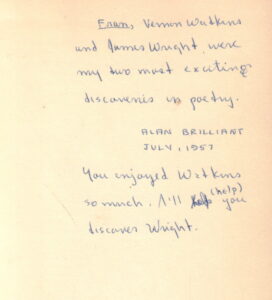 Evan, Vernon Watkins
and James Wright were
my two most exciting
discoveries in poetry.
ALAN BRILLIANT
JULY, 1957
You enjoyed Watkins
so much. I'll help (help) you
discover Wright.